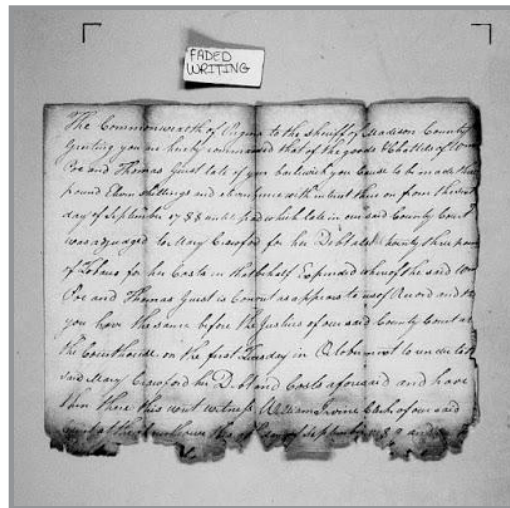 FADED
WRITING
The Commonwealth of Virginia to the sheriff of Madison County
Greeting you are hereby commanded that of the goods & Chattels of Wm
Poe and Thomas Guest late of your bailiwick you Cause to be made
pound Eleven shillings and eleven pence with interest thereon from the
day of September 1788 until paid which late in our said County Court
was adjudged to Mary Crawford for her Debt also twenty three
of Tobacco for her Costs in that behalf Expended whereof the said Wm
Poe and Thomas Guest is Convict as appears to us of Record and
you have the same before the Justices of our said County Court at
the Courthouse on the first Tuesday in October next to render to
said Mary Crawford her Debt and Costs aforesaid and have
then there this writ witness William Irvine Clerk of our said
at the Courthouse this day of September